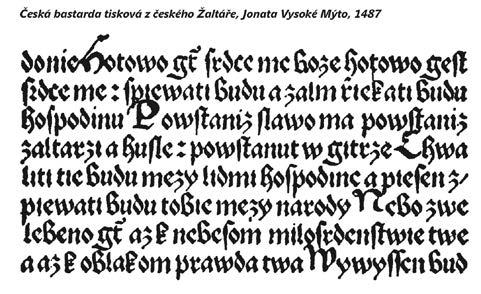 Česká bastarda tisková z českého Žaltáře, Jonata Vysoké Mýto, 1487
donie Hotowo gt̄ srdce me boże hotowo gest
srdce me ꝛ spiewati budu a zalm řiekati budu
hospodinu Powstaniż slawo ma powstaniż
żaltarzi a husle ꝛ powstanut w gitrże Chwa
liti tie budu mezy lidmi hospodine a piesen z/
piewati budu tobie mezy narody Nebo zwe
lebeno gt̄ aż k nebesom milosrdenstwie twe
a aż k oblakom prawda twa Wywyssen bud